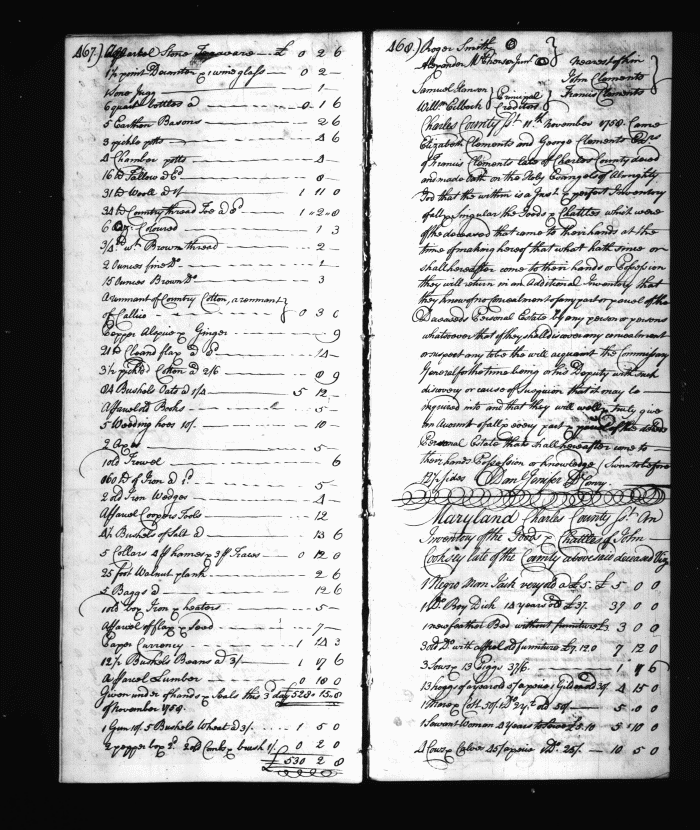 467) A parcel Stone Teaware £ 0 2 6
1 wine glass 0 2
1 Juggs 1
6 quart bottles a 0 1 6
5 Earthen Basons 2 6
3 pickle potts 4 6
4 Chamber potts 4
16 lb Tallow a 6d 8
31 lb Wooll a 1/ 1 11 0
34 lb Country thread a 8d 1 2 8
6 Coloured 1 3
3/4 lb wt. Brown thread 2
2 Ounces fine Do. 1
15 Ounces Brown Do. 3
A remnant of Country Cotton, a remnant
of Callico 0 3 6
Pepper Alspice & Ginger 9
21 lb Cleand flax a 8d 14
3 1/2 pickd Cotton a 2/6 8 9
84 Bushels Oats a 1/4 5 12
A parcel old Books 5
5 Weeding hoes 10/. 10
2 Axes 5
1 old Trowel 6
of Iron a
2 old Iron Wedges 4
A parcel Coopers Tools 12
4 1/2 Bushels of Salt a 13 6
5 Collars 4 pr homes & 3 pr Traces 0 12 0
25 foot Walnut plank 2 6
5 Baggs a 12 6
1 old box Iron & heaters 5
A parcel of flax & seed 7
Paper Currency 1 14 3
12 1/2 Bushels Beans a 3/ 1 17 6
A parcel Lumber 0 10 0
Given under of hands & Seals this 3 day £528 15 8
of November 1758.
1 Gun 10/. 5 Bushels Wheat a 3/. 1 5 0
2 pepper box 2 old Combs & brush 1/. 0 2 0
£530 2 8
468) Roger Smith
Alexander McPherson Junr
nearest of kin
John Clements
Francis Clements
Samuel Hanson
Willm. Elbeck
Principal
Creditors
Charles County Sct. 11th November 1758. Came
Elizabeth Clements and George Clements Exrs
of Francis Clements late of Charles County deced
and made Oath on the Holy Evangels of Almighty
God that the within is a Just & perfect Inventory
of all & Singular the Goods & Chattles which were
of the deceased that came to their hands at the
time of making hereof that what hath since or
shall hereafter come to their hands or Possession
they will return in an Additional Inventory that
they know of no concealment of any part or parcel of the
Deceaseds Personal Estate by any person or persons
whatsoever that if they shall discover any concealment
or suspect any to be the will acquaint the Commissary
General for the time being or his Deputy with such
discovery or cause of Suspicion that it may be
inquired into and that they will well & truly give
an Account of all & every part & parcel of the deceds
Personal Estate that shall hereafter come to
their hands Possession or knowledge / Sworn before
12 1/2 sides Dan Jenifer D Comry.
Maryland Charles County Sct. An
Inventory of the Goods & Chattles of John
Cooksey late of the County abovesaid deceased Viz
1 Negro Man Jack very old a £5. £ 5 0 0
1 Do. Boy Dick 14 years old £39. 39 0 0
1 new feather Bed without furniture £3 3 0 0
3 old Do. with a ffel old furniture £7. 12. 0 7 12 0
3 Sows & 13 Piggs 37/6. 1 17 6
13 hoggs 4 15 0
1 Horse & Colt 50/. 5 0 0
1 Servant Woman 4 years to serve £5.10 5 10 0
4 Cows & Calves 45/ a peice 1 Do. 25/. 10 5 0